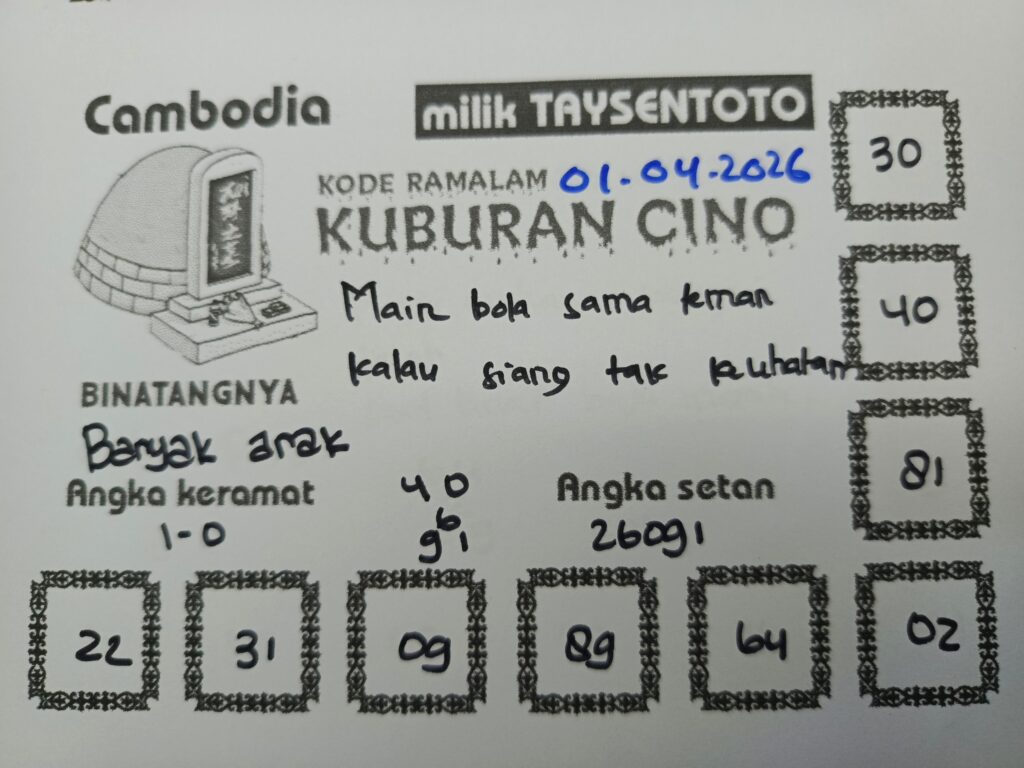 Cambodia
milik TAYSENTOTO
KODE RAMALAM 01.04.2026
KUBURAN CINO
Main bola sama teman
kalau siang tak keuhatan
BINATANGNYA
Banyak anak
Angka keramat
1-0
40
6
91
Angka setan
26091
30
40
81
22
31
09
89
64
02